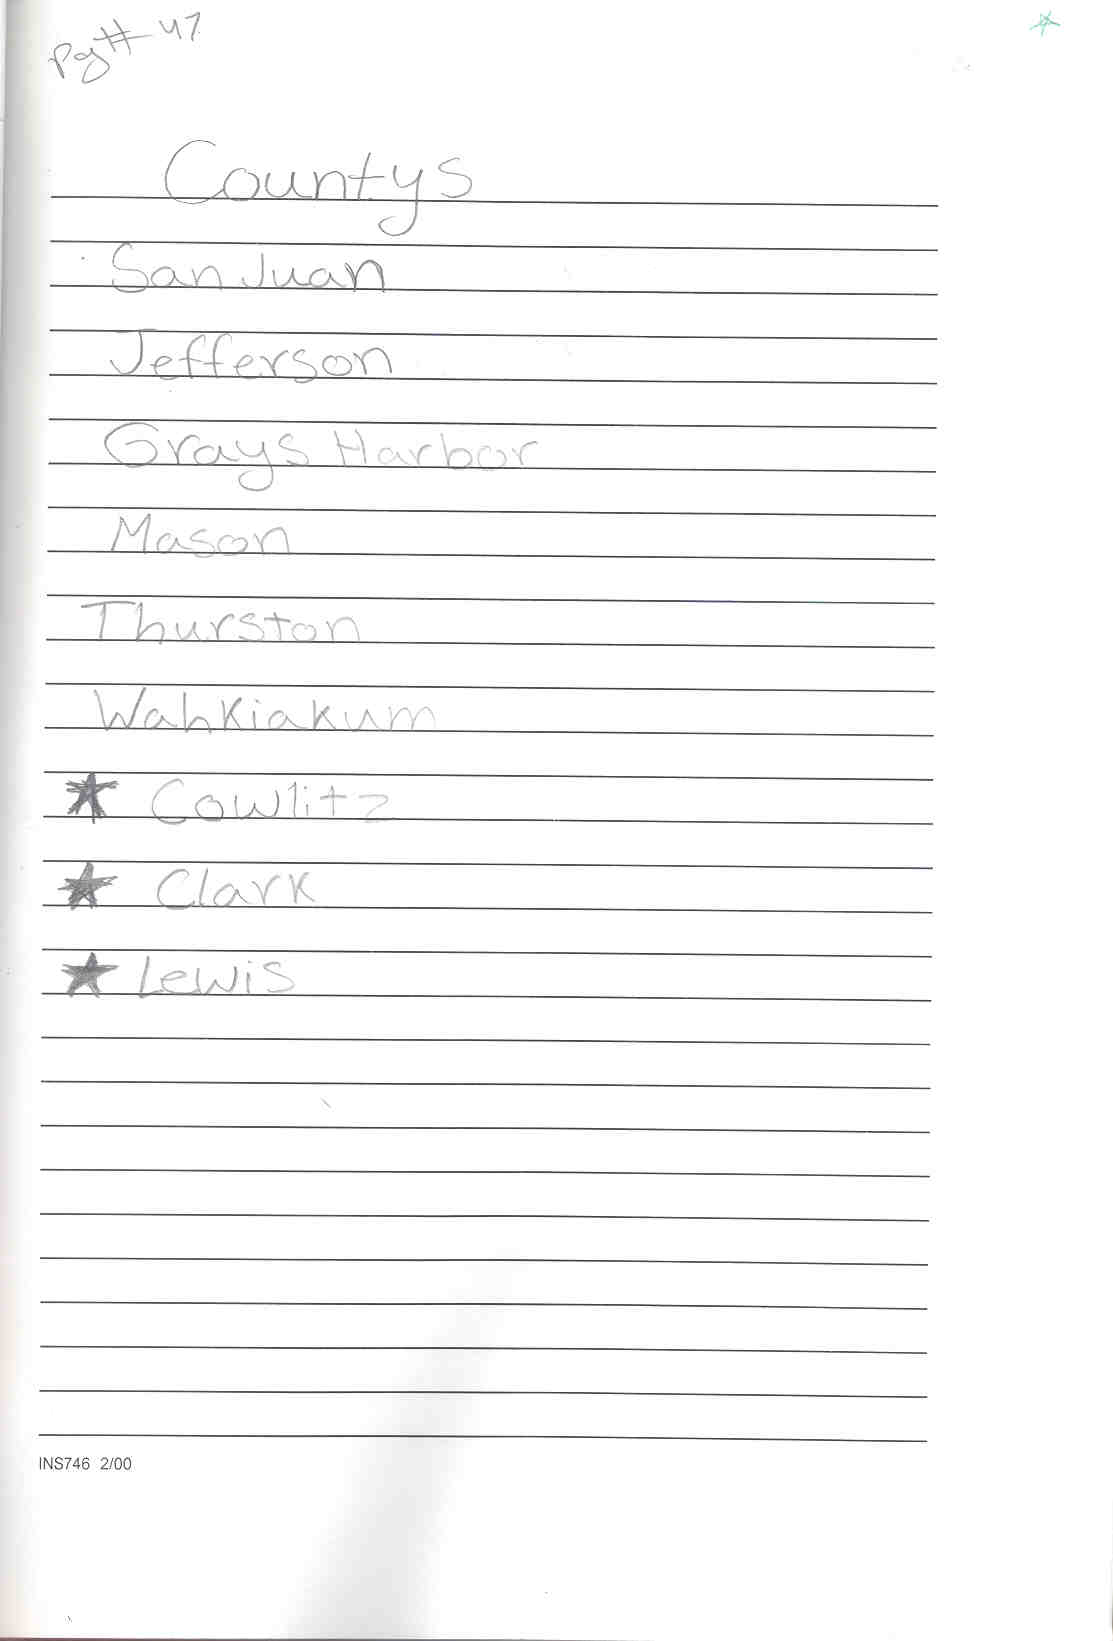 Pg# 47
Countys
San Juan
Jefferson
Grays Harbor
Mason
Thurston
Wahkiakum
★ Cowlitz
★ Clark
★ Lewis
INS746 2/00